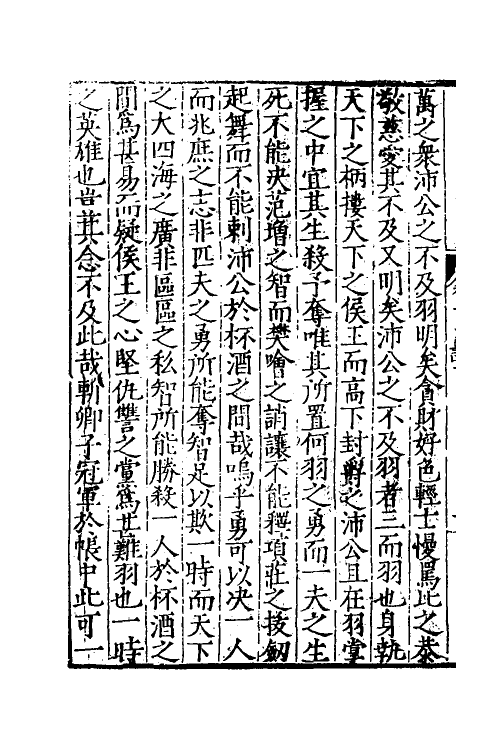 萬之衆沛公之不及羽明矣貪財好色輕士慢罵比之恭
敬慈愛其不及又明矣沛公之不及羽者三而羽也身執
天下之柄摟天下之侯王而高下封爵之沛公且在羽掌
握之中宜其生殺予奪唯其所置何羽之勇而一夫之生
死不能決范增之智而樊噲之誚讓不能釋項莊之拔劔
起舞而不能刺沛公於杯酒之間哉嗚乎勇可以决一人
而兆庶之志非匹夫之勇所能奪智足以欺一時而天下
之大四海之廣非區區之私智所能勝殺一人於杯酒之
間爲甚易而疑侯王之心堅仇讐之黨爲甚難羽也一時
之英雄也豈其念不及此哉斬卿子冠軍於帳中此可一